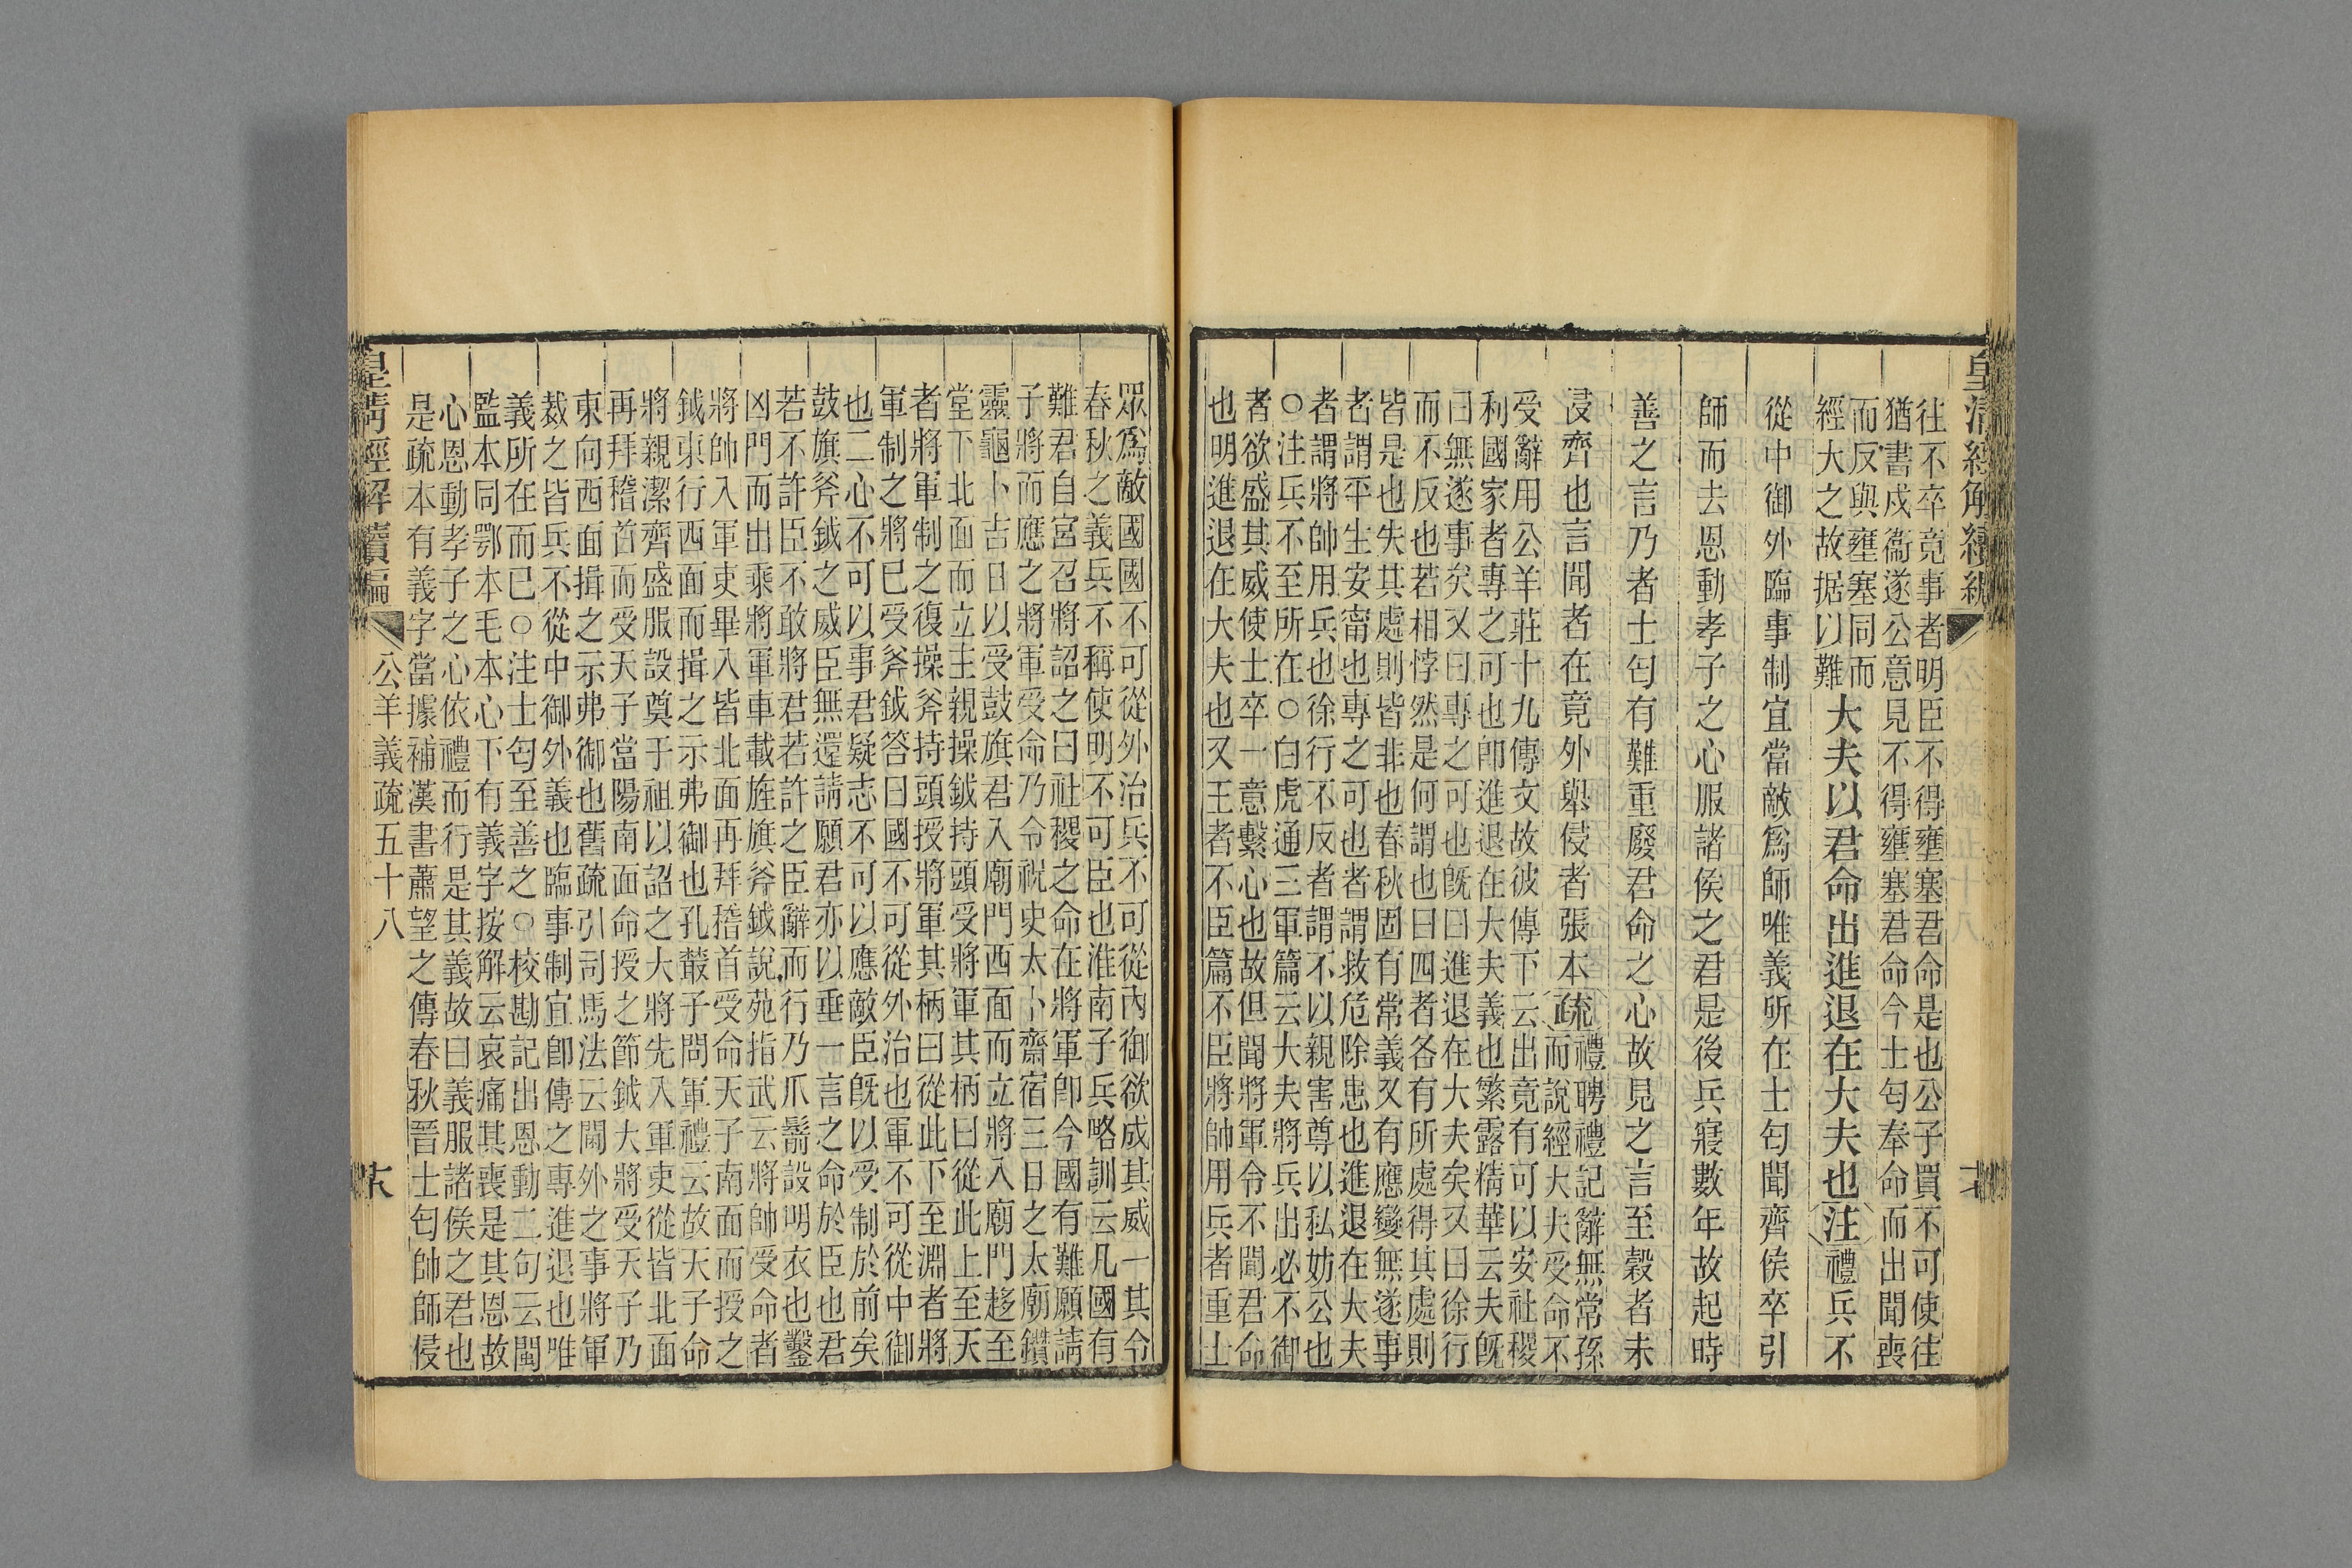 皇清經解續編
往不卒竟事者明臣不得壅塞君命是也公子買不可使往
猶書戍衞遂公意見不得壅塞君命今士匄奉命而出聞喪
而反與壅塞同而
經大之故据以難
大夫以君命出進退在大夫也注禮兵不
從中御外臨事制宜當敵爲師唯義所在士匄聞齊侯卒引
師而去恩動孝子之心服諸侯之君是後兵寢數年故起時
善之言乃者士匄有難重廢君命之心故見之言至穀者未
侵齊也言聞者在竟外舉侵者張本疏
禮聘禮記辭無常孫
而說經大夫受命不
受辭用公羊莊十九傳文故彼傳下云出竟有可以安社稷
利國家者專之可也卽進退在大夫義也繁露精華云夫旣
曰無遂事矣又曰專之可也旣曰進退在大夫矣又曰徐行
而不反也若相悖然是何謂也曰四者各有所處得其處則
皆是也失其處則皆非也春秋固有常義又有應變無遂事
者謂平生安甯也專之可也者謂救危除患也進退在大夫
者謂將帥用兵也徐行不反者謂不以親害尊以私妨公也
○注兵不至所在○白虎通三軍篇云大夫將兵出必不御
者欲盛其威使士卒一意繫心也故但聞將軍令不聞君命
也明進退在大夫也又王者不臣篇不臣將帥用兵者重士
眾爲敵國國不可從外治兵不可從內御欲成其威一其令
春秋之義兵不稱使明不可臣也淮南子兵略訓云凡國有
難君自宮召將詔之曰社稷之命在將軍卽今國有難願請
子將而應之將軍受命乃令祝史太卜齋宿三日之太廟鑽
靈龜卜吉日以受鼓旗君入廟門西面而立將入廟門趍至
堂下北面而立主親操鉞持頭授將軍其柄曰從此上至天
者將軍制之復操斧持頭授將軍其柄曰從此下至淵者將
軍制之將已受斧鉞答曰國不可從外治也軍不可從中御
也二心不可以事君疑志不可以應敵臣旣以受制於前矣
鼓旗斧鉞之威臣無還請願君亦以垂一言之命於臣也君
若不許臣不敢將君若許之臣辭而行乃爪鬋設明衣也鑿
凶門而出乘將軍車載旌旗斧鉞說苑指武云將帥受命者
將帥入軍吏畢入皆北面再拜稽首受命天子南面而授之
鉞東行西面而揖之示弗御也孔叢子問軍禮云故天子命
將親潔齊盛服設奠于祖以詔之大將先入軍吏從皆北面
再拜稽首而受天子當陽南面命授之節鉞大將受天子乃
東向西面揖之示弗御也舊疏引司馬法云閫外之事將軍
裁之皆兵不從中御外義也臨事制宜卽傳之專進退也唯
義所在而已○注士匄至善之○校勘記出恩動二句云閩
監本同鄂本毛本心下有義字按解云哀痛其喪是其恩故
心恩動孝子之心依禮而行是其義故曰義服諸侯之君也
是疏本有義字當據補漢書蕭望之傳春秋晉士匄帥師侵
皇淸經解續編
公羊義疏五十八